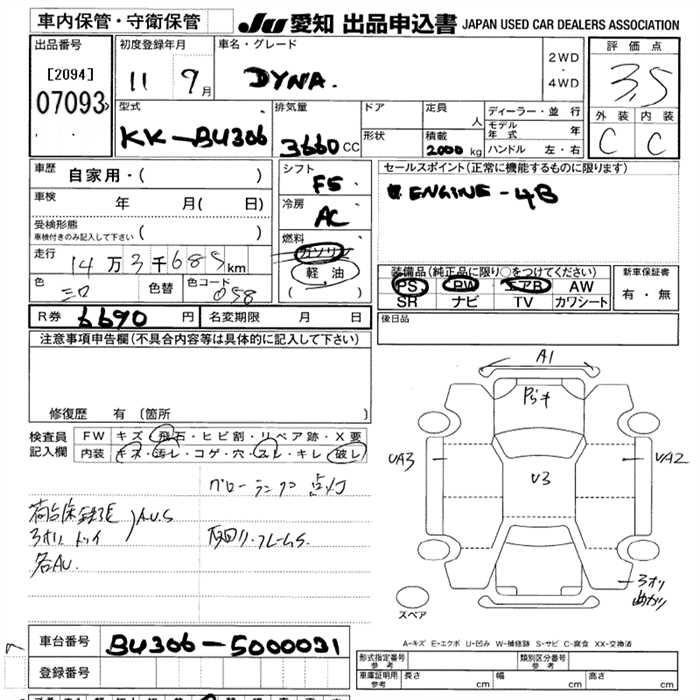 車内保管・守衛保管
JU 愛知 出品申込書 JAPAN USED CAR DEALERS ASSOCIATION
出品番号
[2094]
07093
初度登録年月
11 9月
車名・グレード
DYNA.
2WD
・
4WD
評価点
3.5
外装 内装
C C
型式
KK-BU306
排気量
3660cc
ドア
形状
定員
人
積載
2000kg
ディーラー・並行
モデル年式 年
ハンドル 左・右
車歴 自家用・( )
車検 年 月( 日)
受検形態
車検付きのみ記入して下さい ( )
走行 14万3千685km
色 シロ 色替 色コード 058
シフト
F5
冷房
AC
燃料
ガソリン
軽油
( )
セールスポイント(正常に機能するものに限ります)
ENGINE-4B
装備品(純正品に限り○をつけてください)
PS PW エアB AW
SR ナビ TV カワシート
新車保証書
有・無
後日品
R券 6690円 名変期限 月 日
注意事項申告欄(不具合内容等は具体的に記入して下さい)
修復歴 有(箇所 )
検査員
記入欄
FW キズ・飛石・ヒビ割・リペア跡・X要
内装 キズ・汚レ・コゲ・穴・スレ・キレ・破レ
グローランプ 点灯
A.U.S
各AU.
A1
UA3
U3
UA2
スペア
A-キズ E-エクボ U-凹み W-補修跡 S-サビ C-腐食 XX-交換済
車台番号 BU306-5000031
登録番号
形式指定番号
参考
類別区分番号
参考
車庫証明用
参考
長さ cm 幅 cm 高さ cm